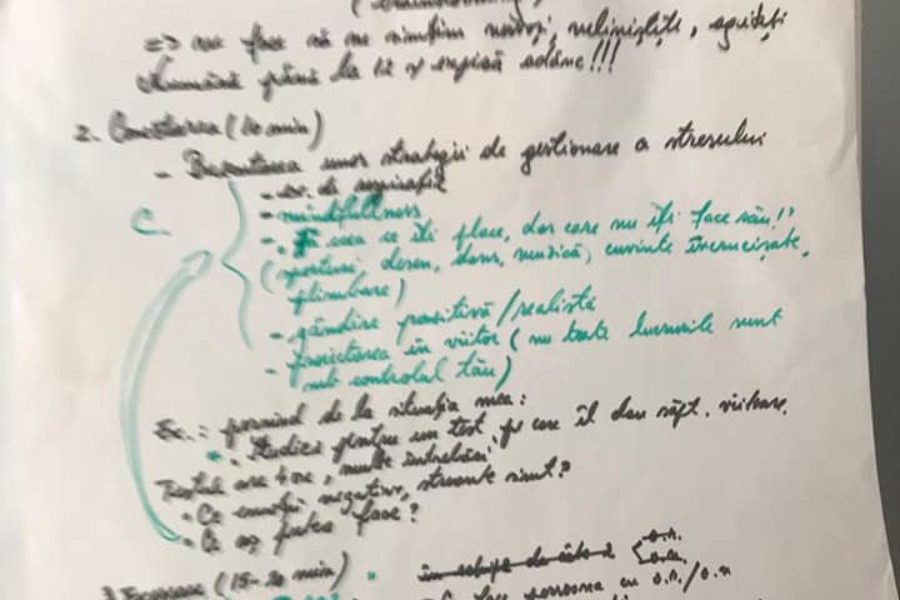 => ne face să ne simțim nervoși, neliniștite, agitați
numără până la 12 și expiră adânc!!!
2. (10 min)
- Prezentarea unor strategii de gestionare a stresului
- ex. de respirație
- mindfullness
C.
- Fă ceea ce îți place, dar care nu îți face rău!"
(sportive, desen, dans, muzică, cuvinte încrucișate,
plimbare)
- gândire pozitivă/realistă
- proiectarea în viitor (nu toate lucrurile sunt
sub controlul tău)
Ex.: pornind de la situația mea:
. Studiez pentru un test pe care îl dau săpt. viitoare.
Testul are 4 ore, multe întrebări.
- Ce emoții negative, simt?
- Ce aș putea face?
3. (15-20 min)
face persoana cu